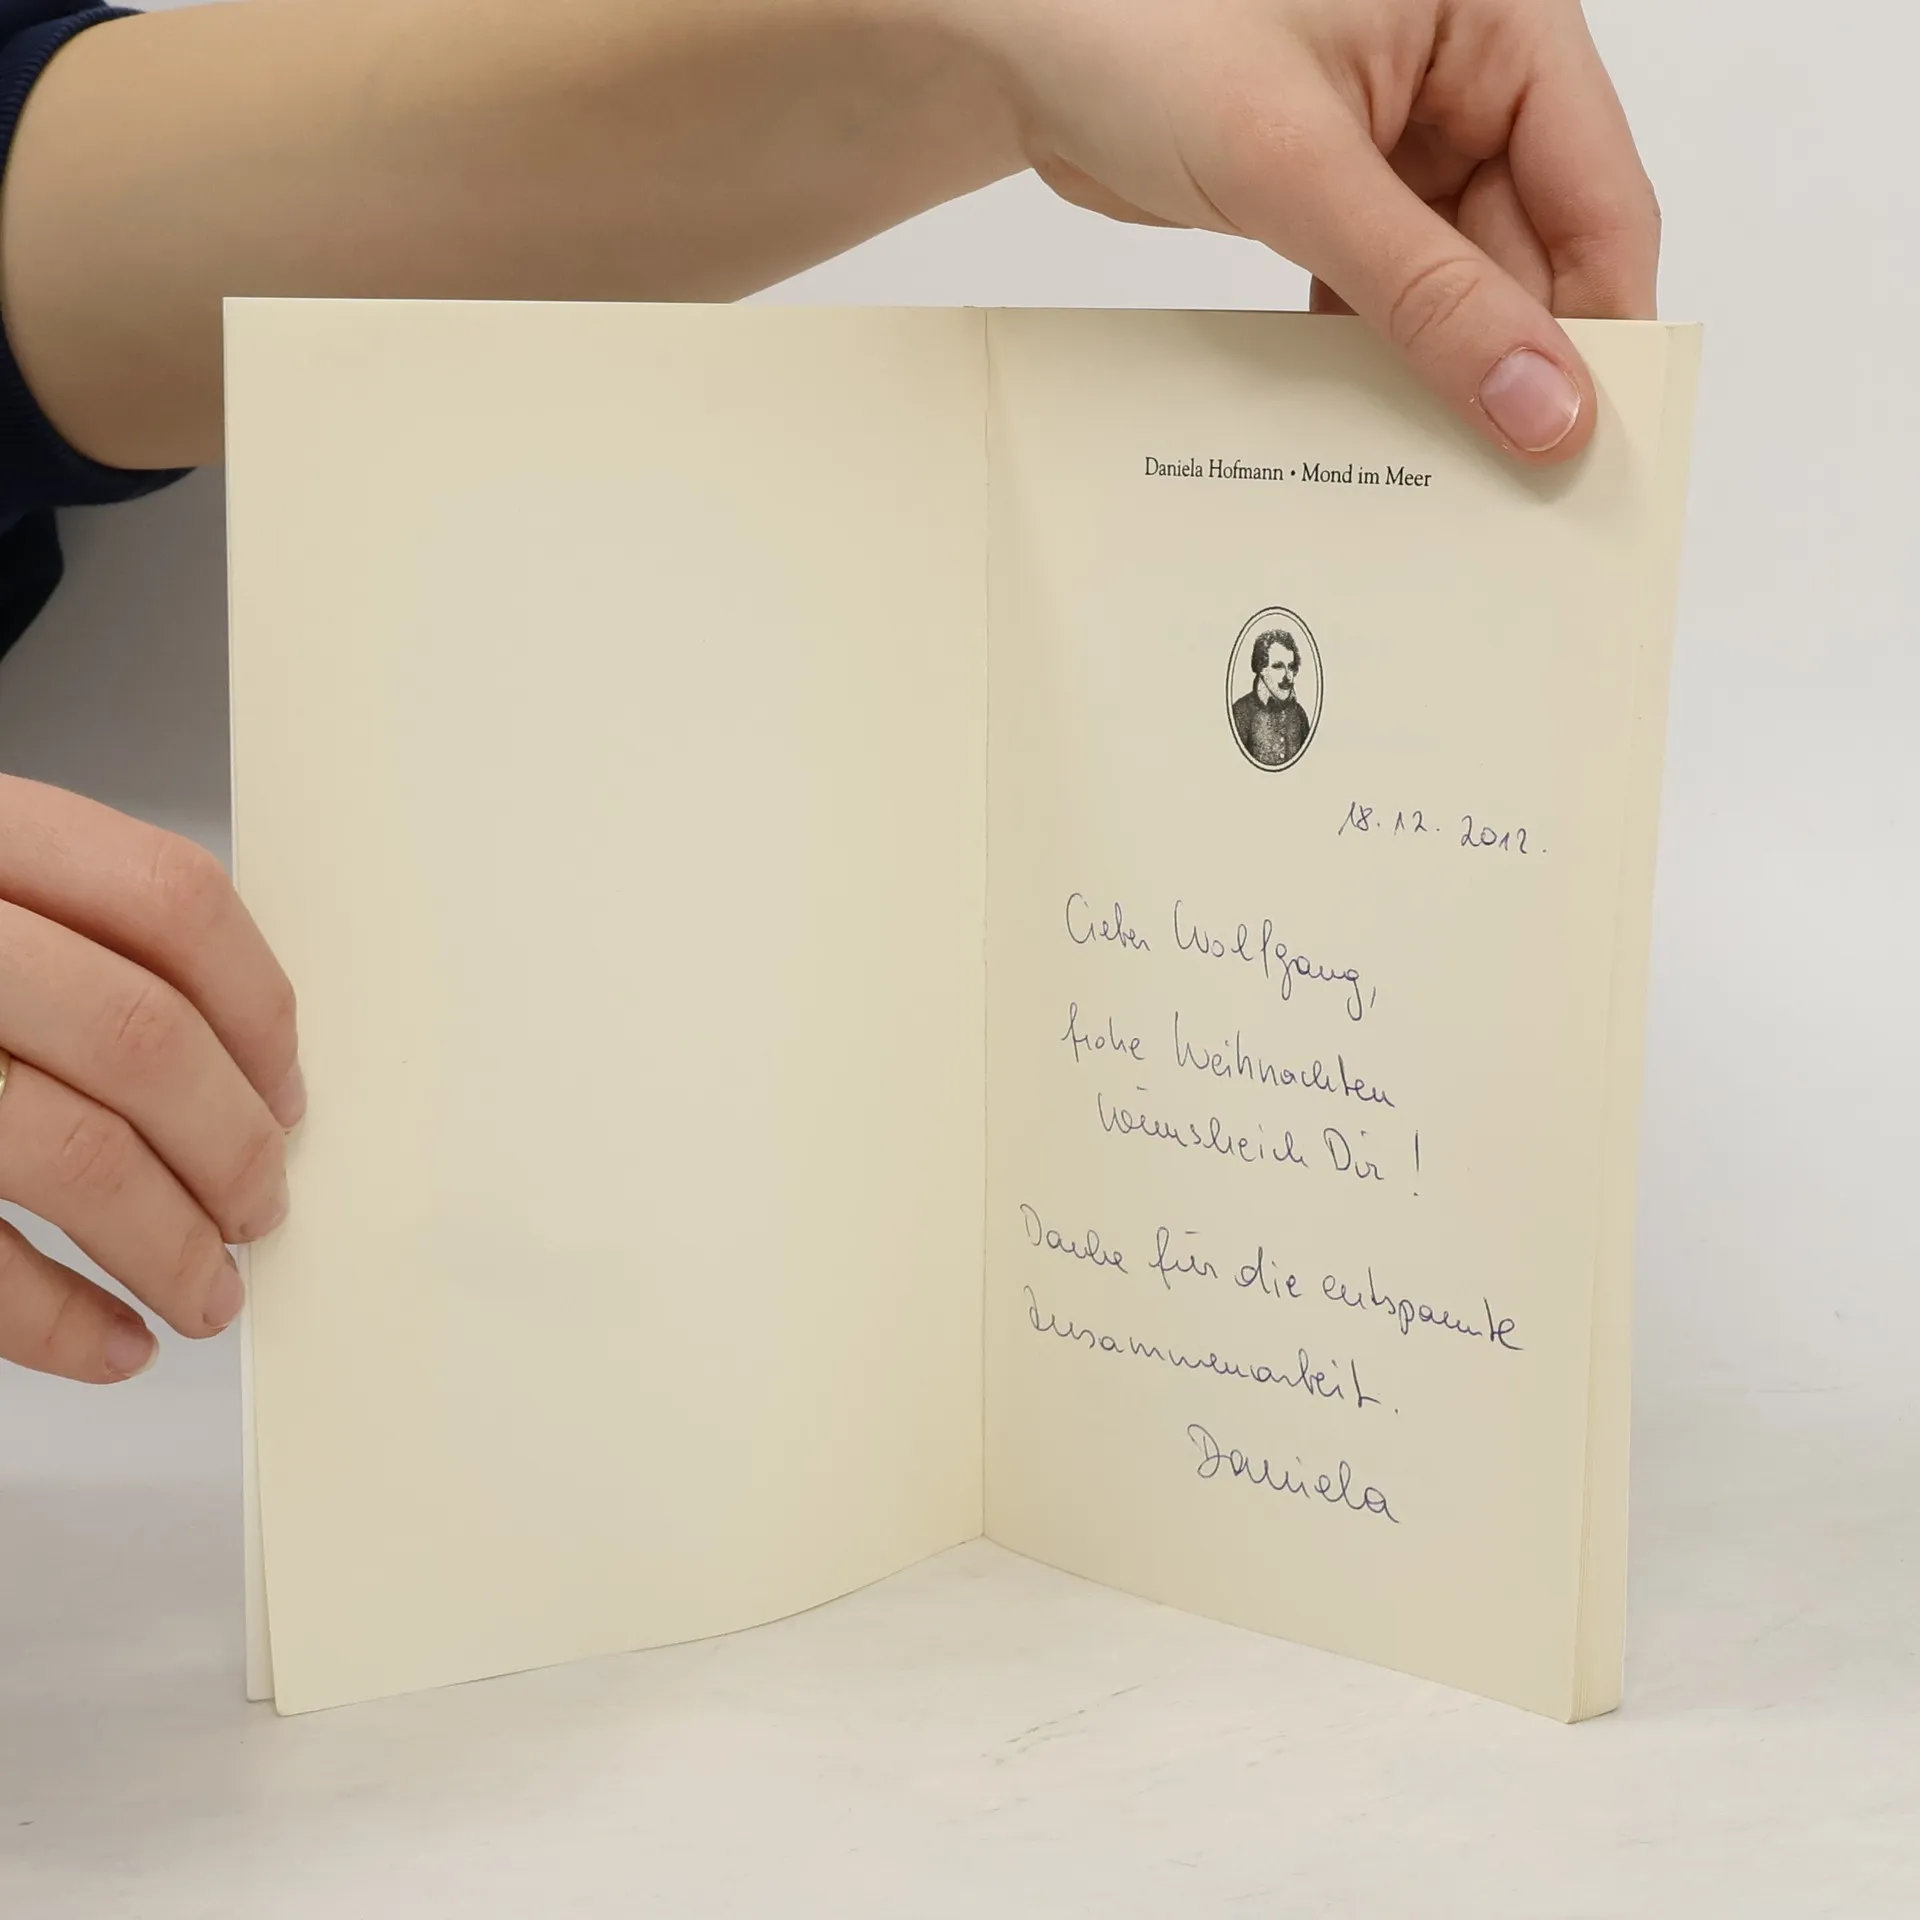 Daniela Hofmann • Mond im Meer
18.12.2012.
Lieber Wolfgang,
frohe Weihnachten
wünsche ich Dir!
Danke für die entspannte
Zusammenarbeit.
Daniela